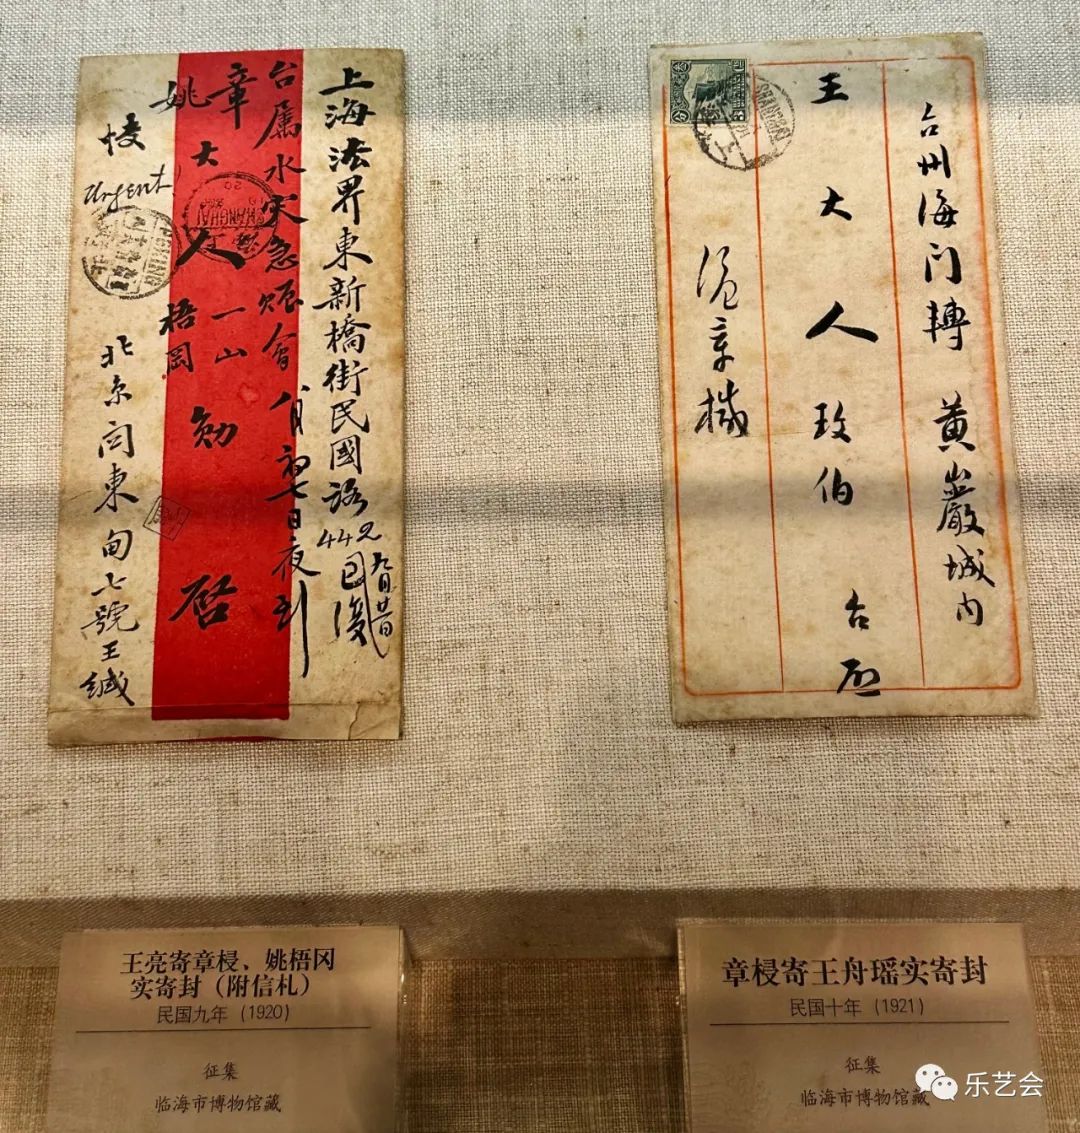 上海法界東新橋街民國路
台属水灾急赈會
章
姚
大
人
一山
梧岡
勋
啓
快
Urgent
北京
東
七號王缄
八月初七日夜到
九月廿日
SHANGHAI
PEKING
台州海门轉黄巖城内
王大人玫伯台啟
沪章械
SHANGHAI
王亮寄章梫、姚梧冈
实寄封（附信札）
民国九年（1920）
征集
临海市博物馆藏
章梫寄王舟瑶实寄封
民国十年（1921）
征集
临海市博物馆藏
乐艺会